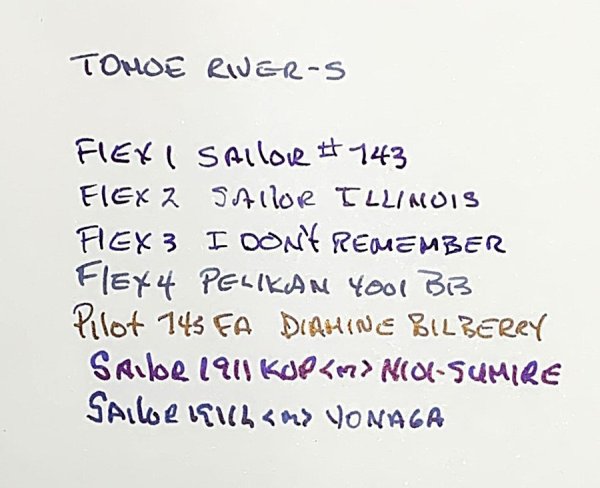 TOMOE RIVER-S
FLEX 1 SAILOR # 743
FLEX 2 SAILOR ILLINOIS
FLEX 3 I DON'T REMEMBER
FLEX 4 PELIKAN 4001 BB
Pilot 743 FA DIAMINE BILBERRY
SAILOR 1911 KOP <M> NIOI-SUMIRE
SAILOR 1911L <M> YONAGA